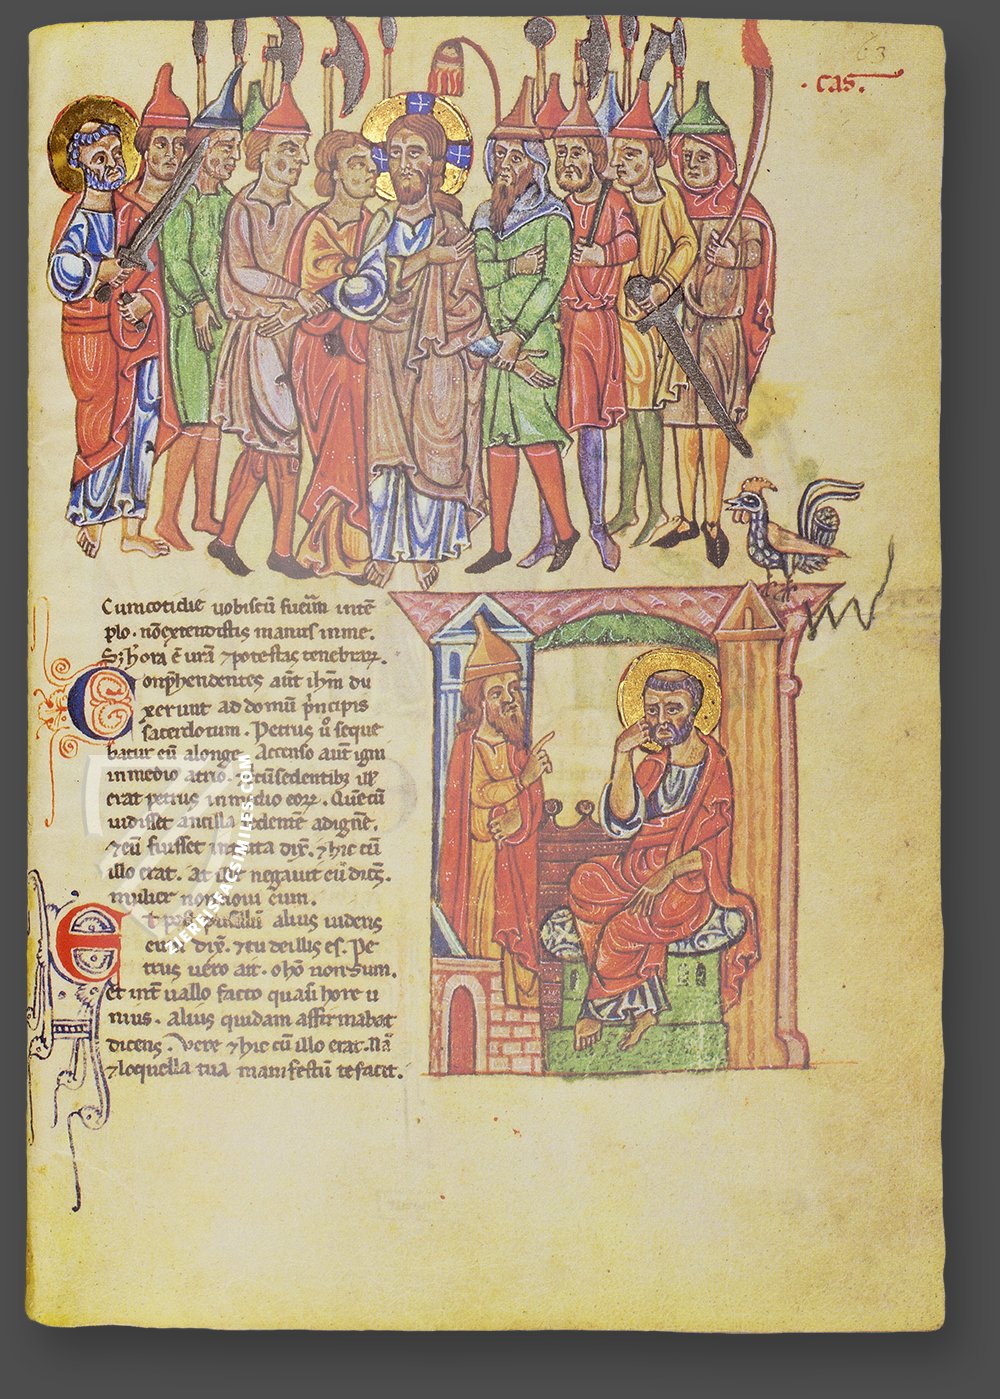 63
· cas.
Cum cotidie uobiscū fuerim̄ in tē
plo · nō extendistis manus in me.
S; h̄ ora ē urā ⁊ potestas tenebrarꝝ.
Conp̄hendentes aūt ihm̄ du
xerunt ad domū p̄ncipis
sacerdotum. Petrus ů seque
batur eū alonge. Accenso aūt igni
in medio atrio. ⁊ cū sedentibꝫ
erat petrus in medio eoꝝ. Quē cū
uidisset ancilla sedentē ad ignē.
⁊ eū fuisset dix̄. ⁊ hic cū
illo erat. At ille negauit eū dicēs.
mulier non noui eum.
Et pusillū alius uidens
eum dix̄. ⁊ tu de illis es. Pe
trus uero ait. o hō non sum.
et int̄uallo facto quasi hore u
nius. alius quidam affirmabat
dicens. Vere ⁊ hic cū illo erat. Nā
⁊ loquella tua manifestū te facit.
ZIEREISFACSIMILES.COM